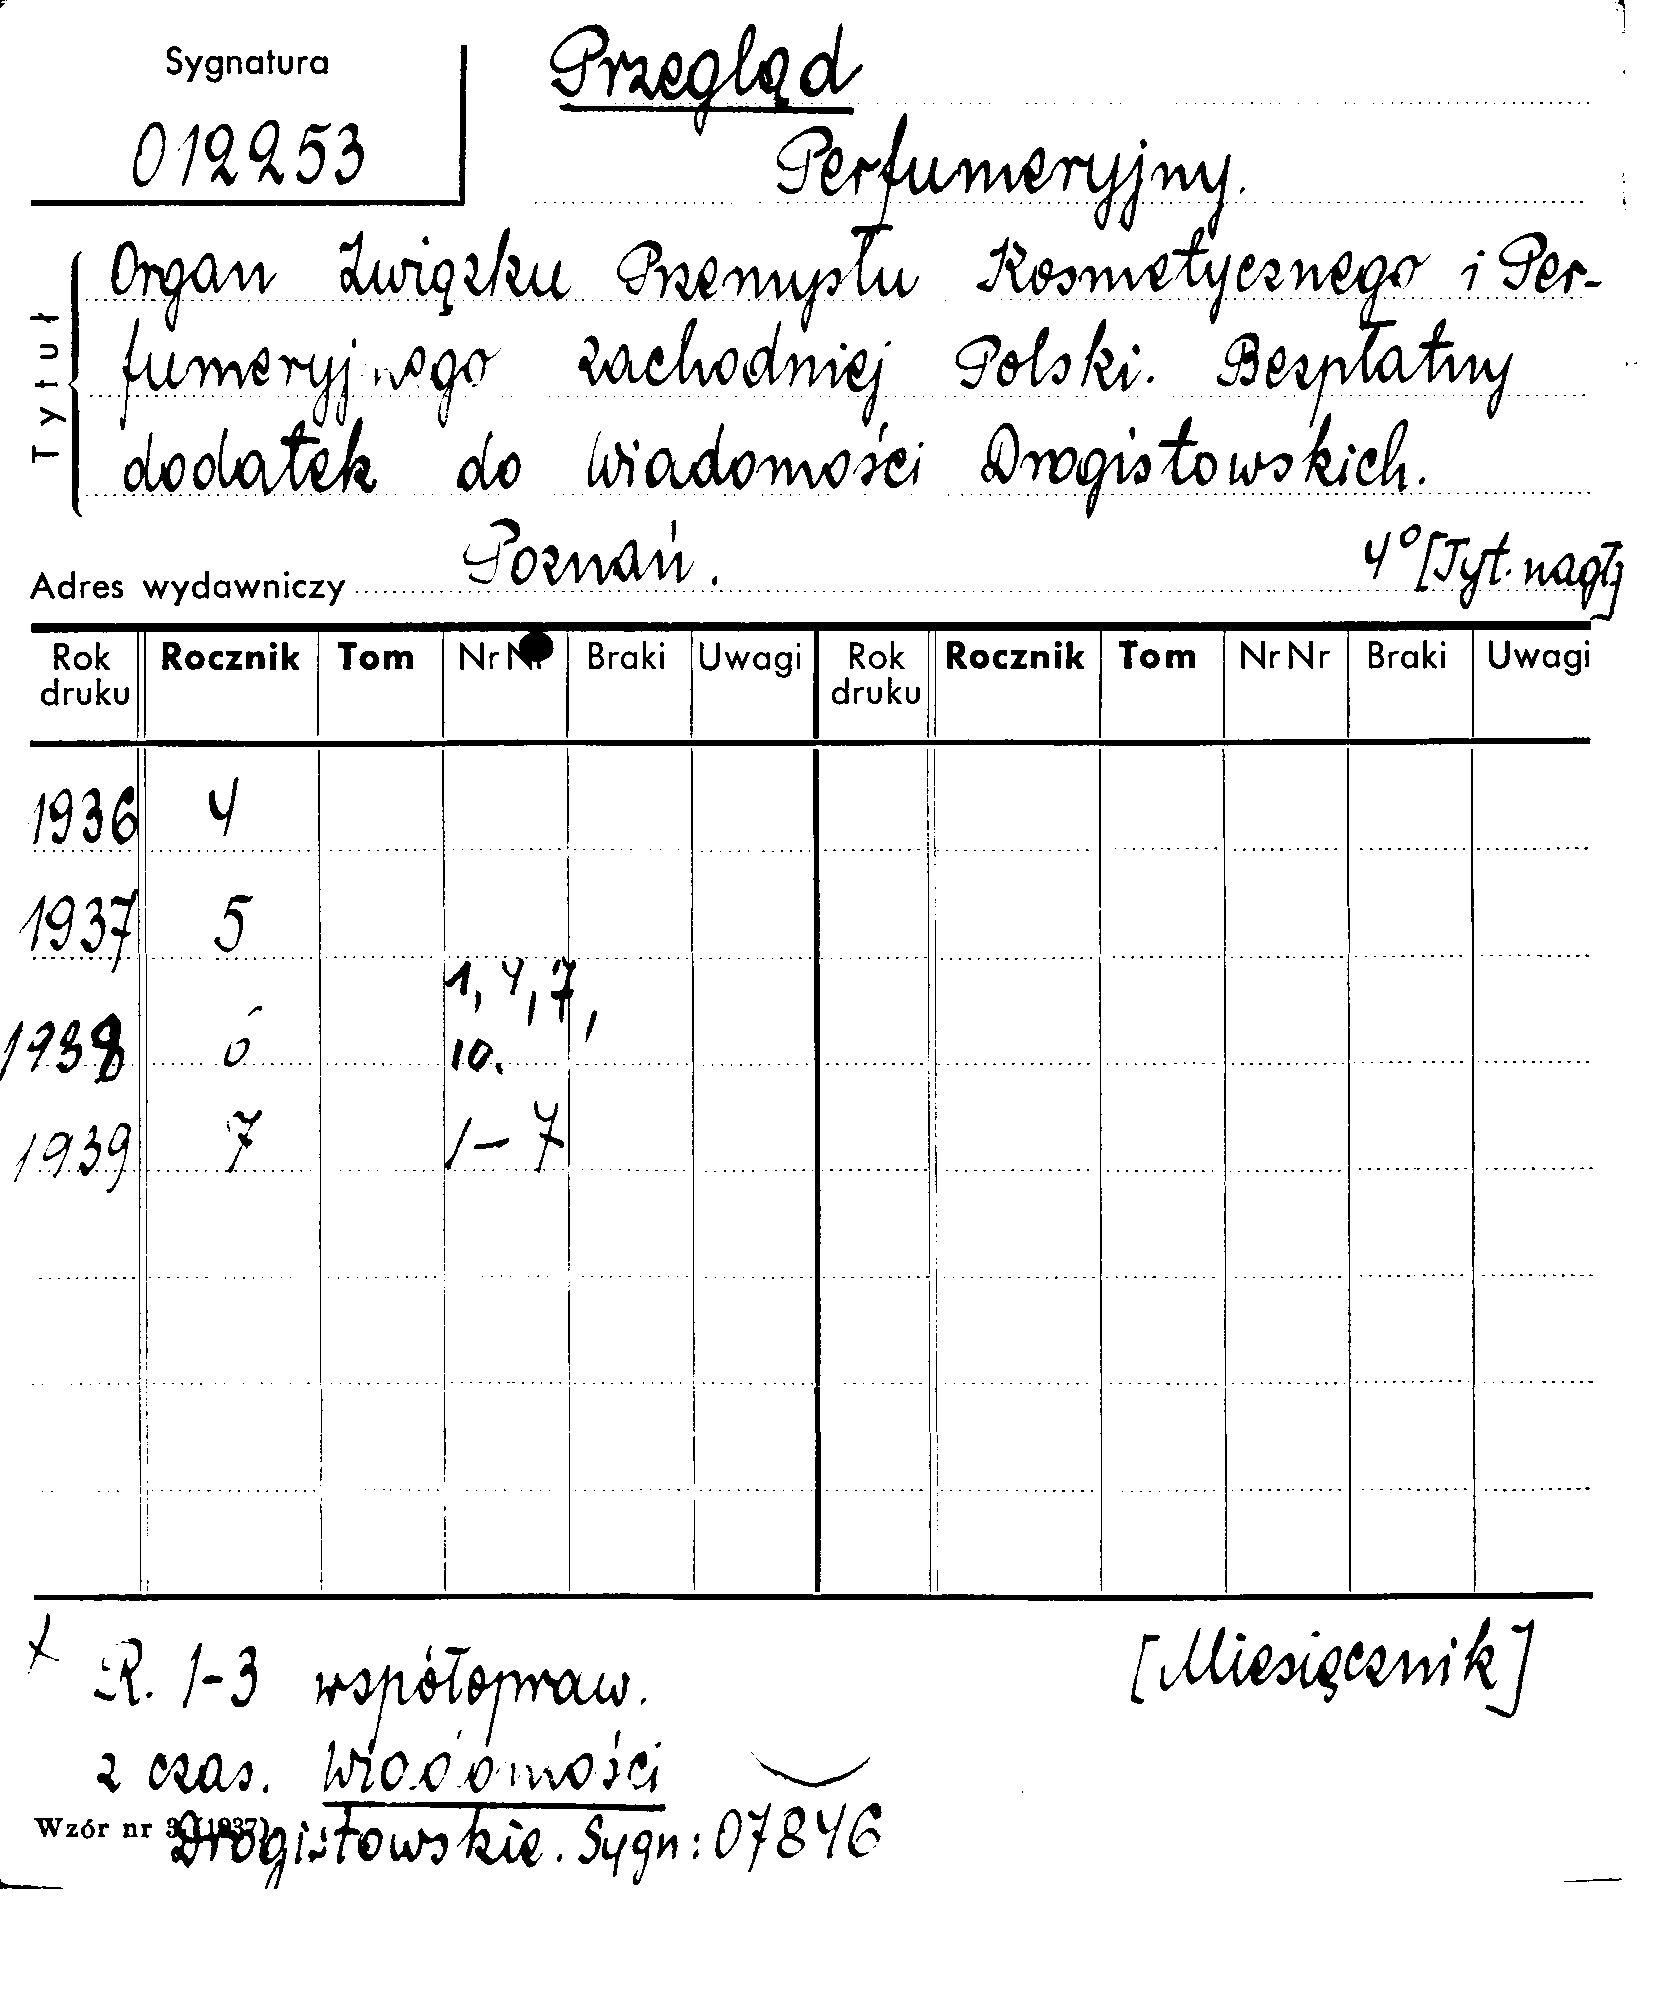 Sygnatura
012253
Przegląd
Perfumeryjny.
Tytuł
Organ Związku Przemysłu Kosmetycznego i Per-
fumeryjnego zachodniej Polski. Bezpłatny
dodatek do Wiadomości Drogistowskich.
Adres wydawniczy Poznań. 4° [Tyt. nagł.]
Rok druku Rocznik Tom Nr Nr Braki Uwagi Rok druku Rocznik Tom Nr Nr Braki Uwagi
1936 4
1937 5
1938 6 1, 4, 7, 10.
1939 7 1-7
x R. 1-3 współopraw. [Miesięcznik]
z czas. Wiadomości
Wzór nr 3 (1937)
Drogistowskie. Sygn: 07846